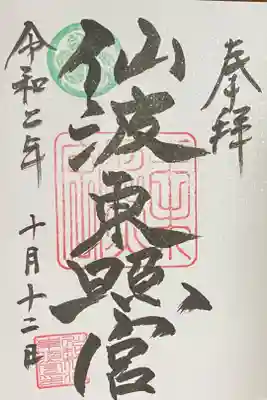 奉拝
仙波東照宮
令和二年
十月十二日